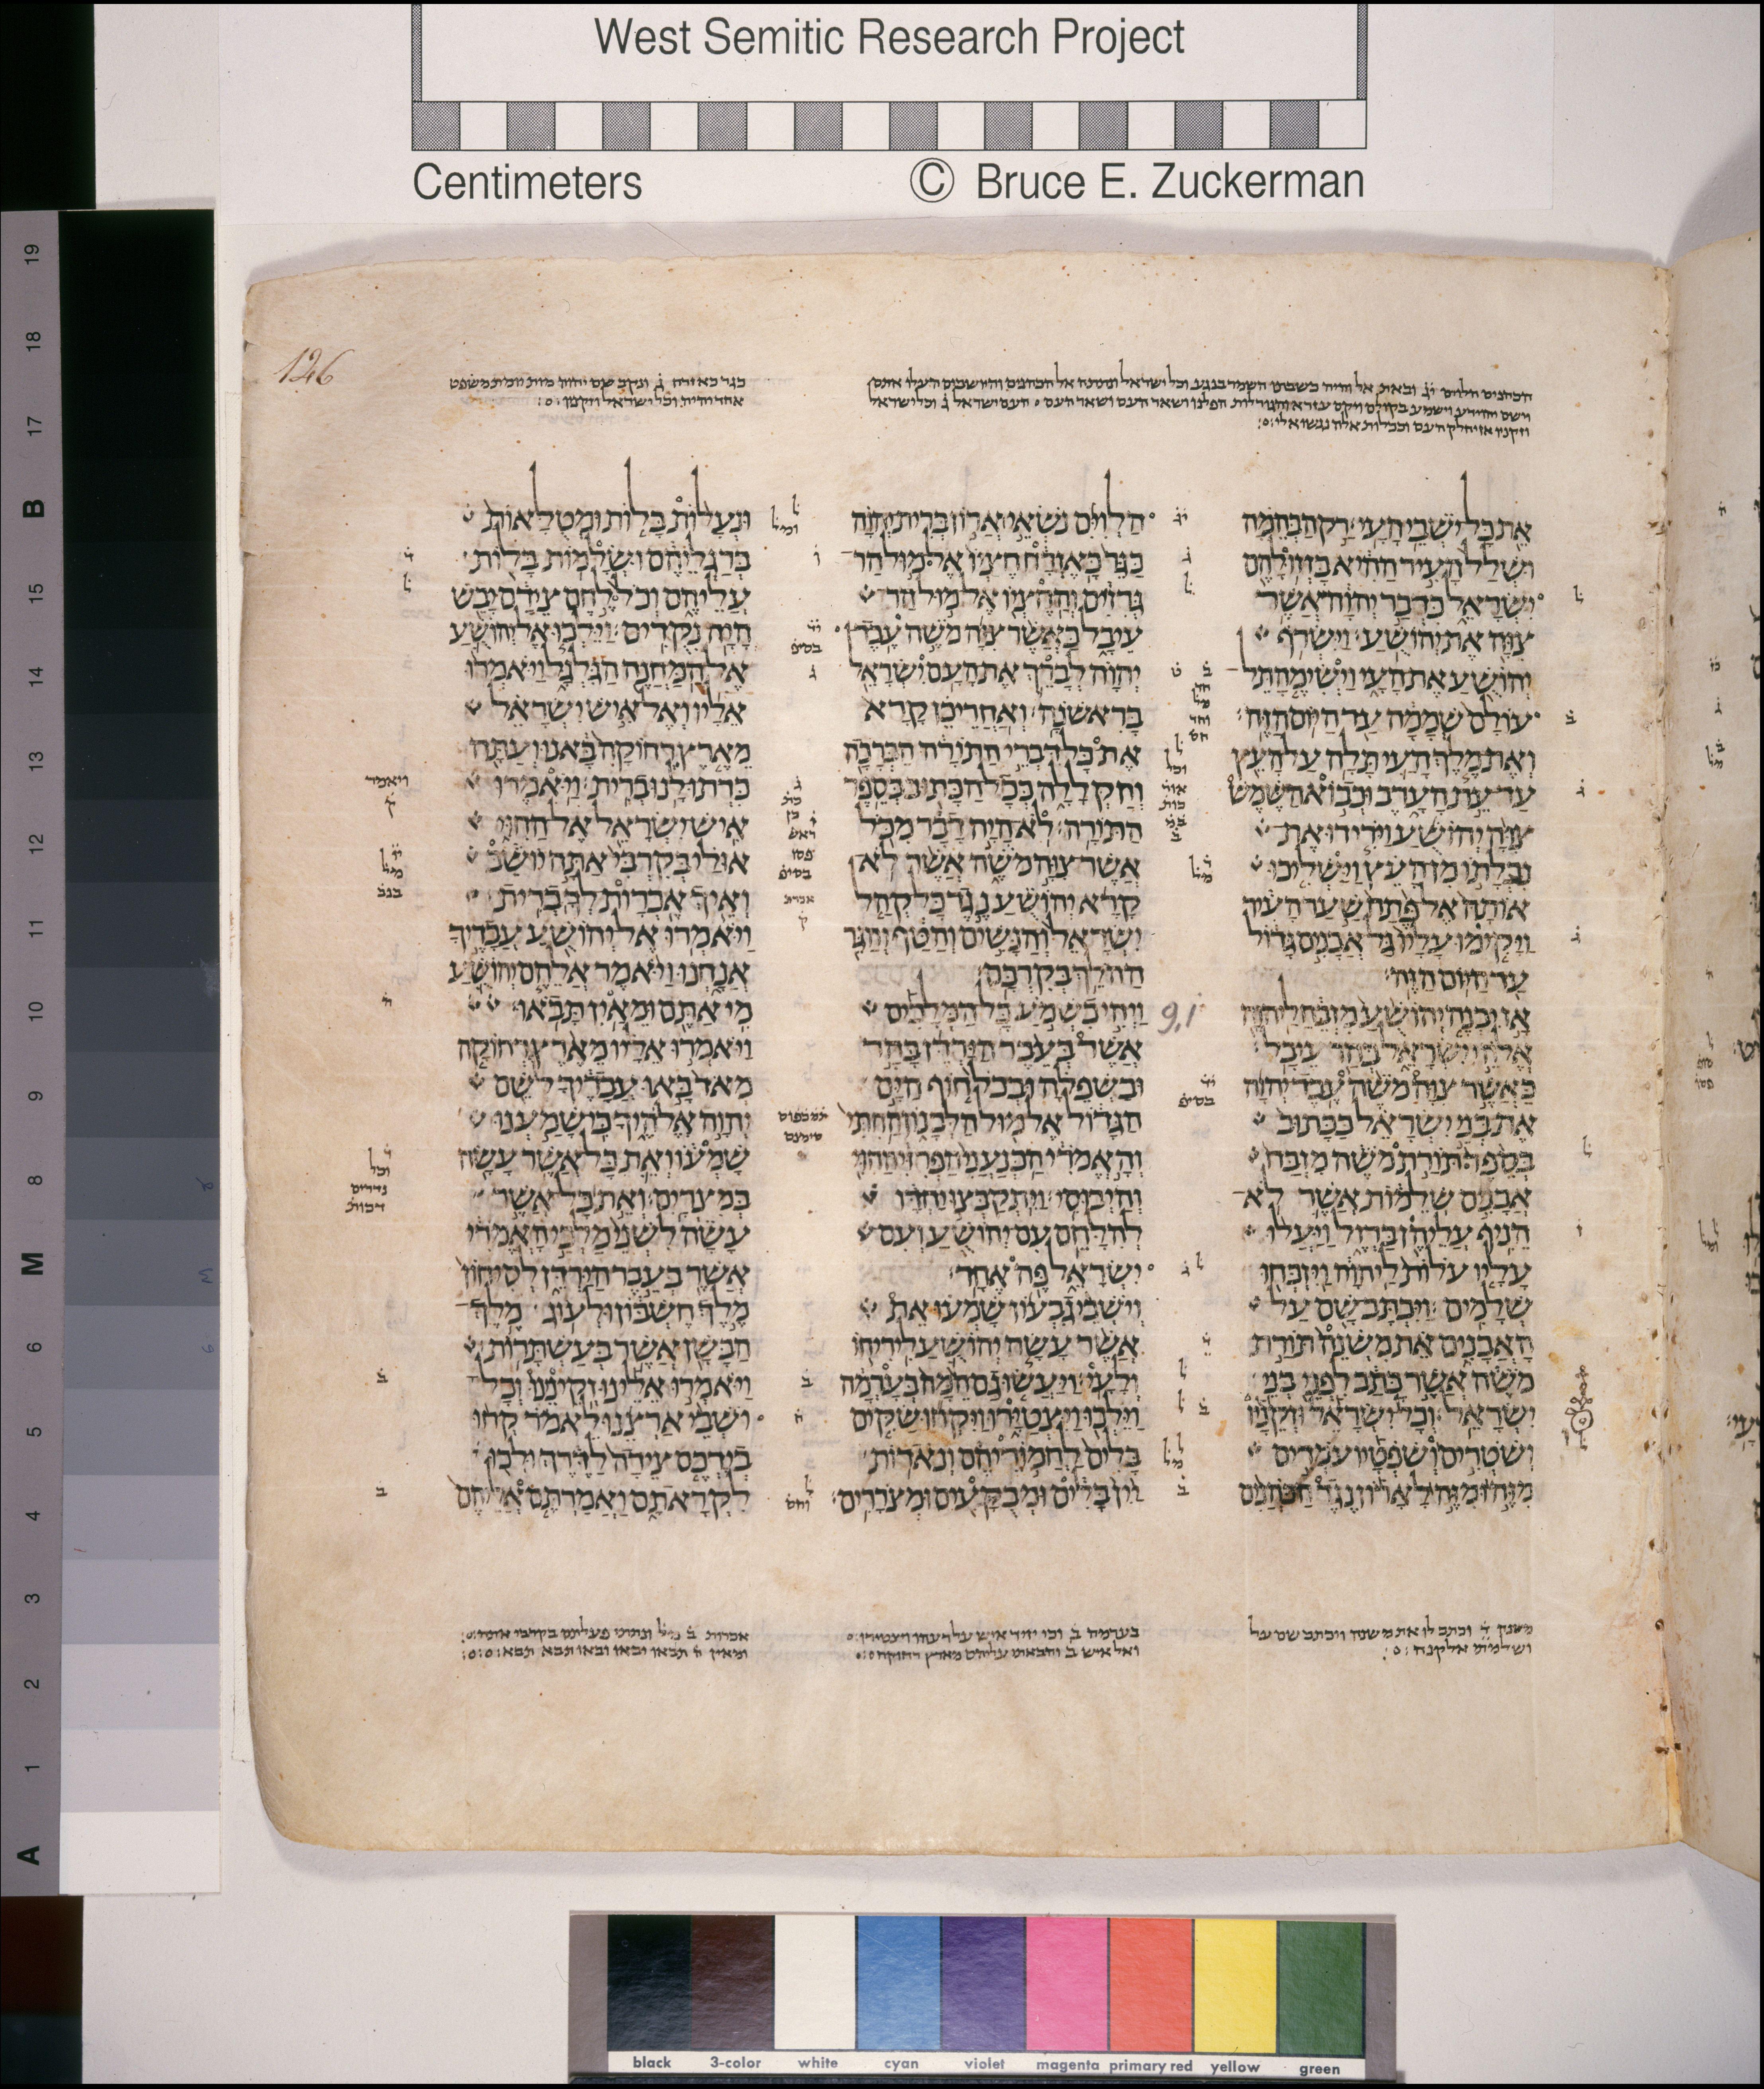 West Semitic Research Project
Centimeters © Bruce E. Zuckerman
126
את כל ישבי העי׃ רק הבהמה
ושלל העיר ההיא בזזו להם
ישראל כדבר יהוה אשר
צוה את יהושע׃ וישרף
יהושע את העי וישימה תל
עולם שממה עד היום הזה׃
ואת מלך העי תלה על העץ
עד עת הערב וכבוא השמש
צוה יהושע וירידו את
נבלתו מן העץ וישליכו
אותה אל פתח שער העיר
ויקימו עליו גל אבנים גדול
עד היום הזה׃
אז יבנה יהושע מזבח ליהוה
אלהי ישראל בהר עיבל׃
כאשר צוה משה עבד יהוה
את בני ישראל ככתוב
בספר תורת משה מזבח
אבנים שלמות אשר לא
הניף עליהן ברזל ויעלו
עליו עלות ליהוה ויזבחו
שלמים׃ ויכתב שם על
האבנים את משנה תורת
משה אשר כתב לפני בני
ישראל׃ וכל ישראל וזקניו
ושטרים ושפטיו עמדים
מזה ומזה לארון נגד הכהנים
הלוים נשאי ארון ברית יהוה
כגר כאזרח חציו אל מול הר
גרזים והחציו אל מול הר
עיבל כאשר צוה משה עבד
יהוה לברך את העם ישראל
בראשנה׃ ואחרי כן קרא
את כל דברי התורה הברכה
והקללה ככל הכתוב בספר
התורה׃ לא היה דבר מכל
אשר צוה משה אשר לא
קרא יהושע נגד כל קהל
ישראל והנשים והטף והגר
ההלך בקרבם׃
ויהי כשמע כל המלכים
אשר בעבר הירדן בהר
ובשפלה ובכל חוף הים
הגדול אל מול הלבנון החתי
והאמרי הכנעני הפרזי החוי
והיבוסי׃ ויתקבצו יחדו
להלחם עם יהושע ועם
ישראל פה אחד׃
וישבי גבעון שמעו את
אשר עשה יהושע ליריחו
ולעי׃ ויעשו גם המה בערמה
וילכו ויצטירו ויקחו שקים
בלים לחמוריהם ונאדות
יין בלים ומבקעים ומצררים׃
ונעלות בלות ומטלאות
ברגליהם ושלמות בלות
עליהם וכל לחם צידם יבש
היה נקדים׃ וילכו אל יהושע
אל המחנה הגלגל ויאמרו
אליו ואל איש ישראל
מארץ רחוקה באנו ועתה
כרתו לנו ברית׃ ויאמרו
איש ישראל אל החוי
אולי בקרבי אתה יושב
ואיך אכרות לך ברית׃
ויאמרו אל יהושע עבדיך
אנחנו ויאמר אלהם יהושע
מי אתם ומאין תבאו׃
ויאמרו אליו מארץ רחוקה
מאד באו עבדיך לשם
יהוה אלהיך כי שמענו
שמעו ואת כל אשר עשה
במצרים׃ ואת כל אשר
עשה לשני מלכי האמרי
אשר בעבר הירדן לסיחון
מלך חשבון ולעוג מלך
הבשן אשר בעשתרות׃
ויאמרו אלינו זקינינו וכל
ישבי ארצנו לאמר קחו
בידכם צידה לדרך ולכו
לקראתם ואמרתם אליהם
9,1
black 3-color white cyan violet magenta primary red yellow green
19 18 17 B 15 14 13 12 11 10 9 8 M 6 5 4 3 2 1 A